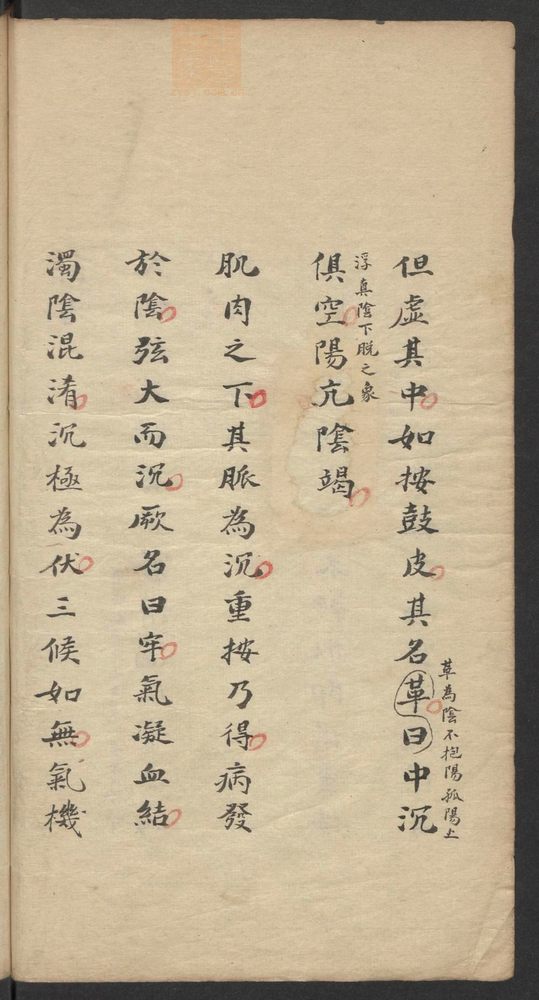 但虛其中如按鼓皮其名革曰中沉
革為陰不抱陽孤陽上
浮真陰下脫之象
俱空陽亢陰竭
肌肉之下其脈為沉重按乃得病發
於陰弦大而沉厥名曰牢氣凝血結
濁陰混淆沉極為伏三候如無氣機